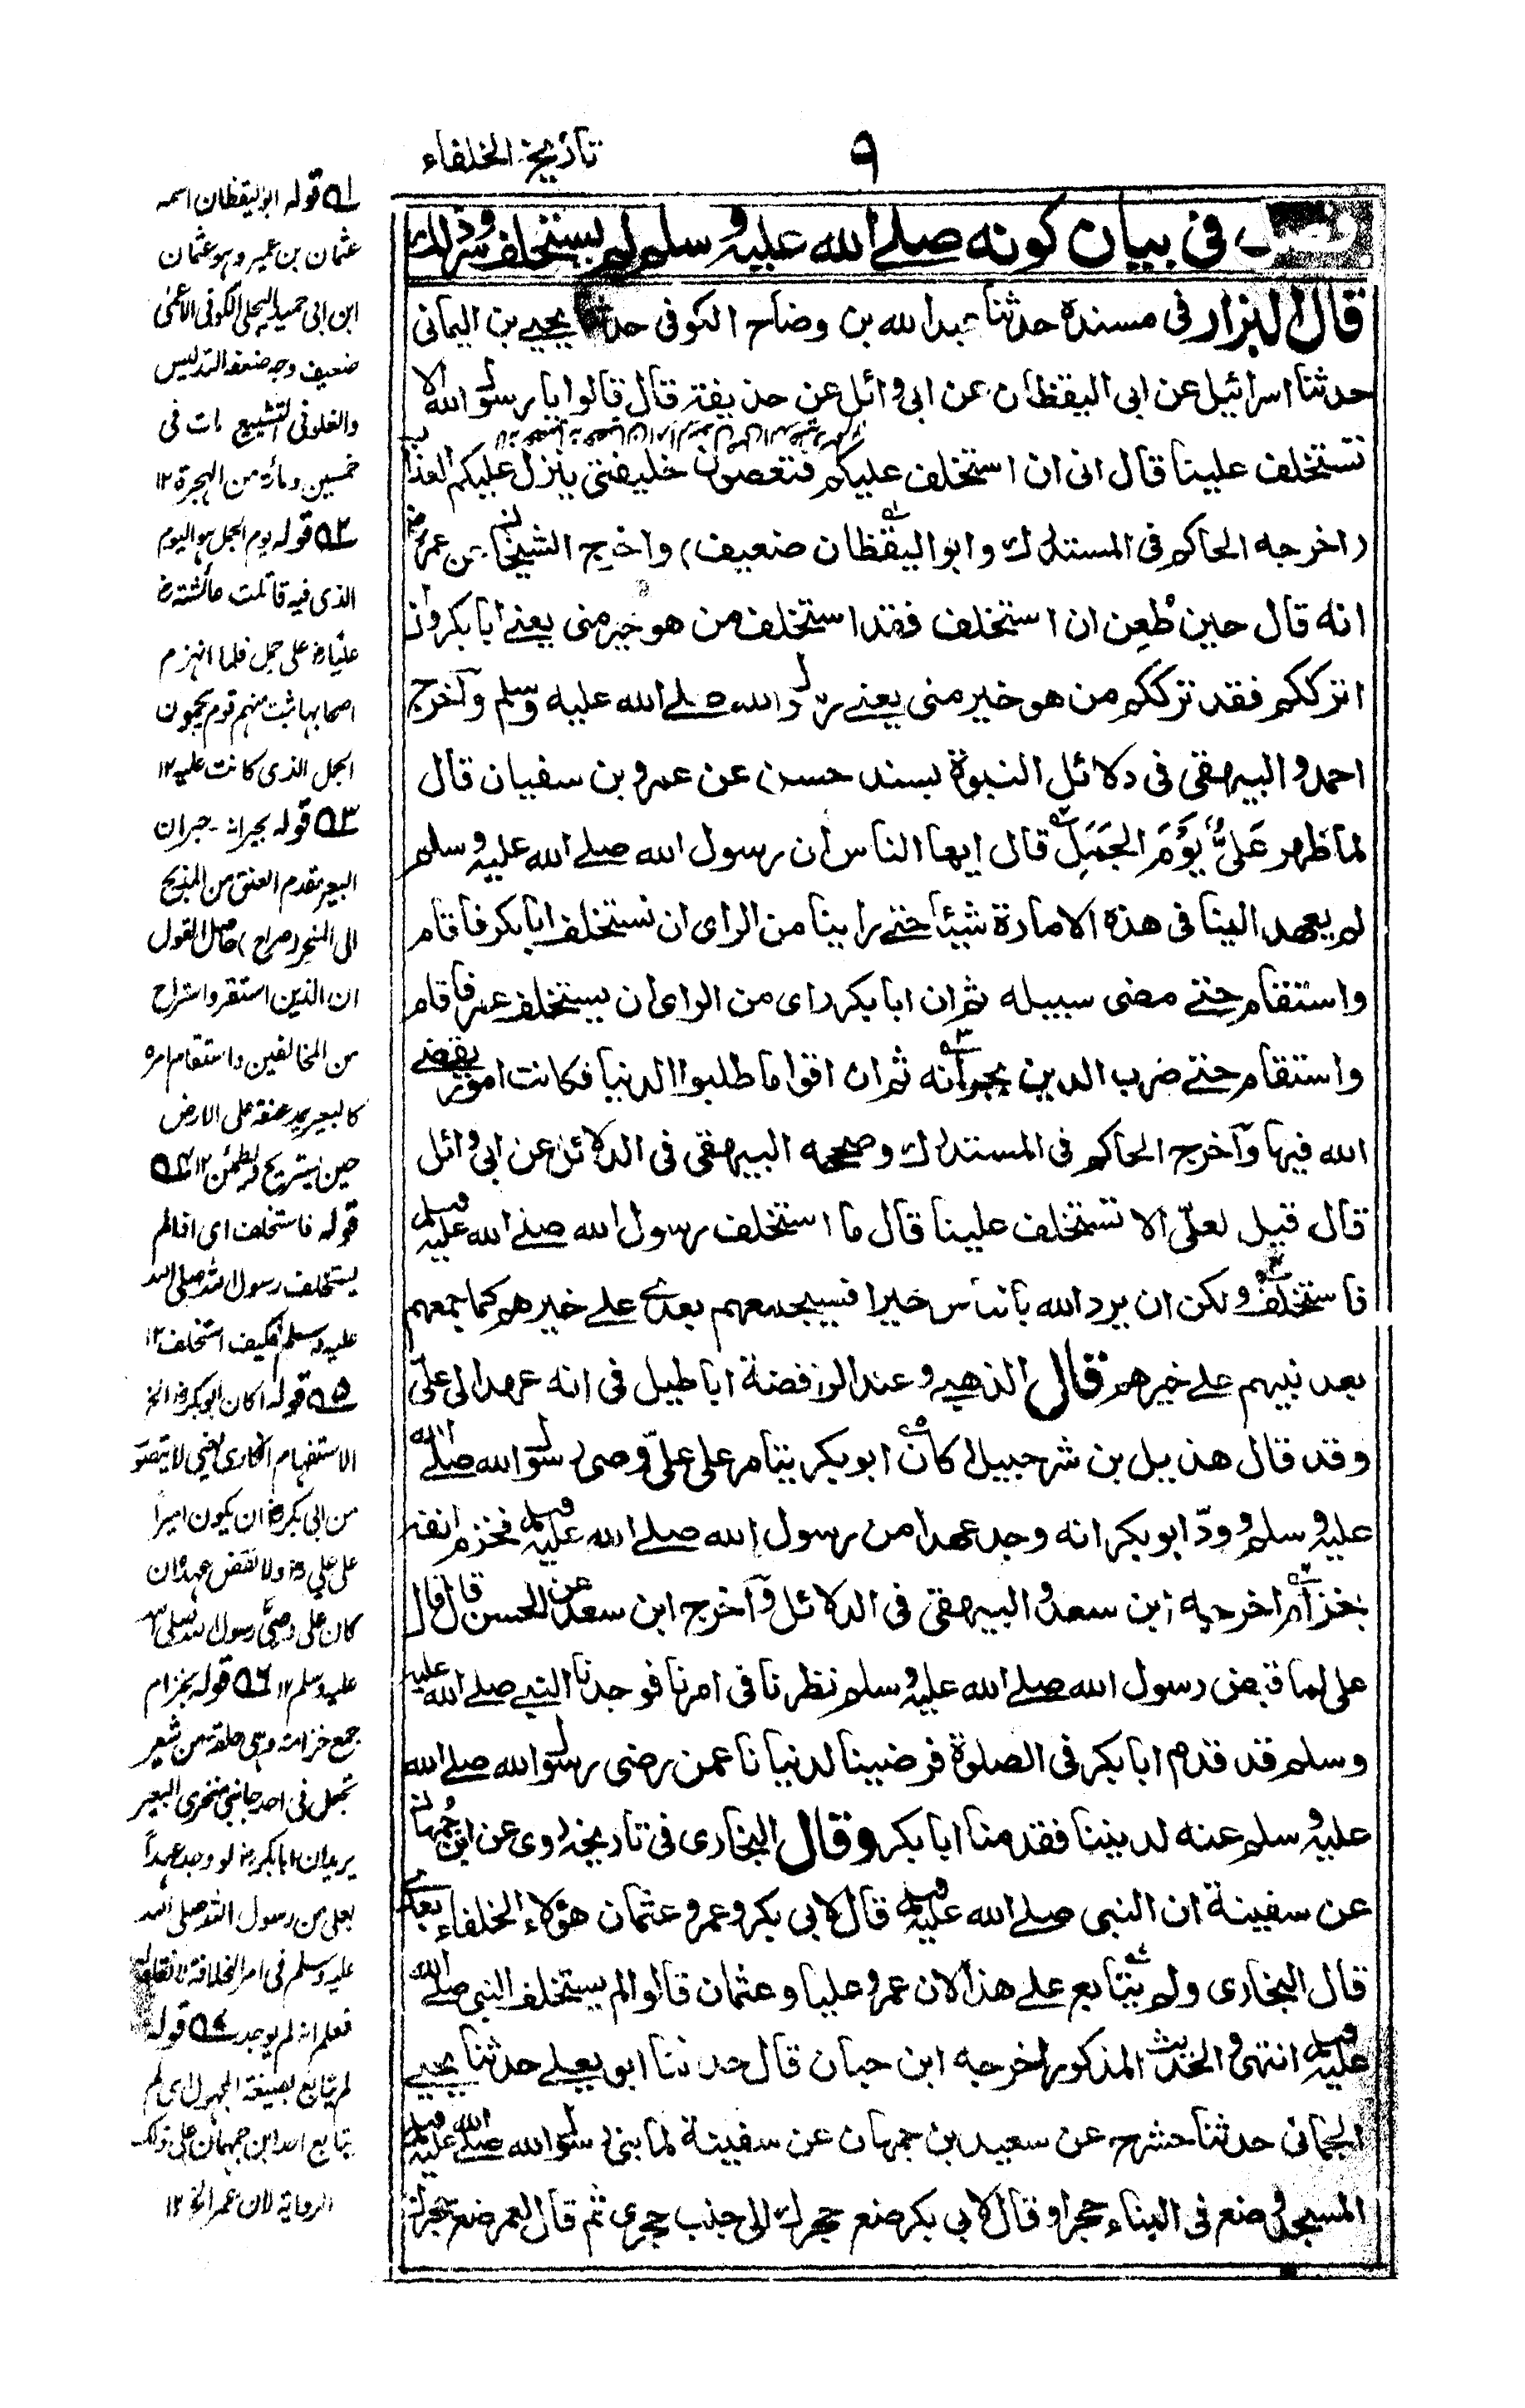 ٩
تاريخ الخلفاء
فصل فى بيان كونه صلے الله عليه وسلم لم يستخلف وسر ذلك
قال البزار فى مسنده حدثنا عبد الله بن وضاح الكوفى حدثنا يحيے بن اليمانى
حدثنا اسرائيل عن ابى اليقظان عن ابى وائل عن حذيفة قال قالوا يا رسول الله الا
تستخلف علينا قال انى ان استخلف عليكم فتعصون خليفتى ينزل عليكم العذاب
(اخرجه الحاكم فى المستدرك وابو اليقظان ضعيف) واخرج الشيخان عن عمر رض
انه قال حين طُعِن ان استخلف فقد استخلف من هو خير منى يعنے ابا بكر وان
اترككم فقد ترككم من هو خير منى يعنے رسول الله صلے الله عليه وسلم وآخرج
احمد والبيهقى فى دلائل النبوة بسند حسن عن عمرو بن سفيان قال
لما ظهر عَلىٌّ يَوْمَ الجَمَلِ قال ايها الناس ان رسول الله صلے الله عليه وسلم
لم يعهد الينا فى هذه الامارة شيئا حتے راينا من الراى ان نستخلف ابا بكر فاقام
واستقام حتے مضى سبيله ثم ان ابا بكر راى من الراى ان يستخلف عمر فاقام
واستقام حتے ضرب الدين بجرانه ثم ان اقواما طلبوا الدنيا فكانت امور يقضے
الله فيها وآخرج الحاكم فى المستدرك وصححه البيهقى فى الدلائل عن ابى وائل
قال قيل لعلىّ الا تستخلف علينا قال ما استخلف رسول الله صلے الله عليه وسلم
فاستخلف ولكن ان يرد الله بالناس خيرا فسيجمعهم بعدى علے خيرهم كما جمعهم
بعد نبيهم علے خيرهم قال الذهبے وعند الرافضة اباطيل فى انه عهد الى علىّ
وقد قال هذيل بن شرحبيل اكان ابو بكر يتامر على علىّ وصى رسول الله صلے الله
عليه وسلم وودّ ابو بكر انه وجد عهدا من رسول الله صلے الله عليه وسلم فخزم انفه
بخزام اخرجه ابن سعد والبيهقى فى الدلائل وآخرج ابن سعد عن الحسن قال قال
على لما قبض رسول الله صلے الله عليه وسلم نظرنا فى امرنا فوجدنا النبے صلے الله عليه
وسلم قد قدم ابا بكر فى الصلوة فرضينا لدنيانا عمن رضى رسول الله صلے الله
عليه وسلم عنه لديننا فقدمنا ابا بكر وقال البخارى فى تاريخه روى عن ابن جُمهان
عن سفينة ان النبى صلے الله عليه وسلم قال لابى بكر وعمر وعثمان هؤلاء الخلفاء بعدى
قال البخارى ولم يتابع علے هذا لان عمر وعليا وعثمان قالوا لم يستخلف النبى صلے الله
عليه وسلم انتهى والحديث المذكور اخرجه ابن حبان قال حدثنا ابو يعلے حدثنا يحيے
الحمانى حدثنا حشرج عن سعيد بن جمهان عن سفينة لما بنى رسول الله صلے الله عليه وسلم
المسجد وضع فى البناء حجرا وقال لابى بكر ضع حجرك الى جنب حجرى ثم قال لعمر ضع حجرك
١ قوله ابو اليقظان اسمه
عثمان بن عمير وهو عثمان
ابن ابى حميد البجلى الكوفى الاعمى
ضعيف وجه ضعفه التدليس
والغلو فى التشيع مات فى
خمسين ومائة من الهجرة ١٢
٢ قوله يوم الجمل هو اليوم
الذى فيه قاتلت عائشة رض
عليا رض على جمل فلما انهزم
اصحابها ثبت منهم قوم يحمون
الجمل الذى كانت عليه ١٢
٣ قوله بجرانه - جران
البعير مقدم العنق من المذبح
الى المنحر (صراح) حاصل القول
ان الدين استقر واستراح
من المخالفين واستقام امره
كالبعير يمد عنقه على الارض
حين يستريح ويطمئن ١٢ ٤
قوله فاستخلف اى اذا لم
يستخلف رسول الله صلى الله
عليه وسلم فكيف استخلف ١٢
٥ قوله اكان ابو بكر رض الخ
الاستفهام انكارى يعنى لا يتصور
من ابى بكر رض ان يكون اميرا
على علي رض ولا نقض عهده ان
كان على وصىّ رسول الله صلى الله
عليه وسلم ١٢ ٦ قوله بخزام
جمع خزامة وهى حلقة من شعر
تجعل فى احد جانبى منخرى البعير
يريد ان ابا بكر رض لو وجد عهداً
بعلى من رسول الله صلى الله
عليه وسلم فى امر الخلافة لانقاد له
فعلم انه لم يوجد ٧ قوله
لم يتابع بصيغة المجهول اى لم
يتابع احد ابن جمهان على ذلك
الرواية لان عمر الخ ١٢